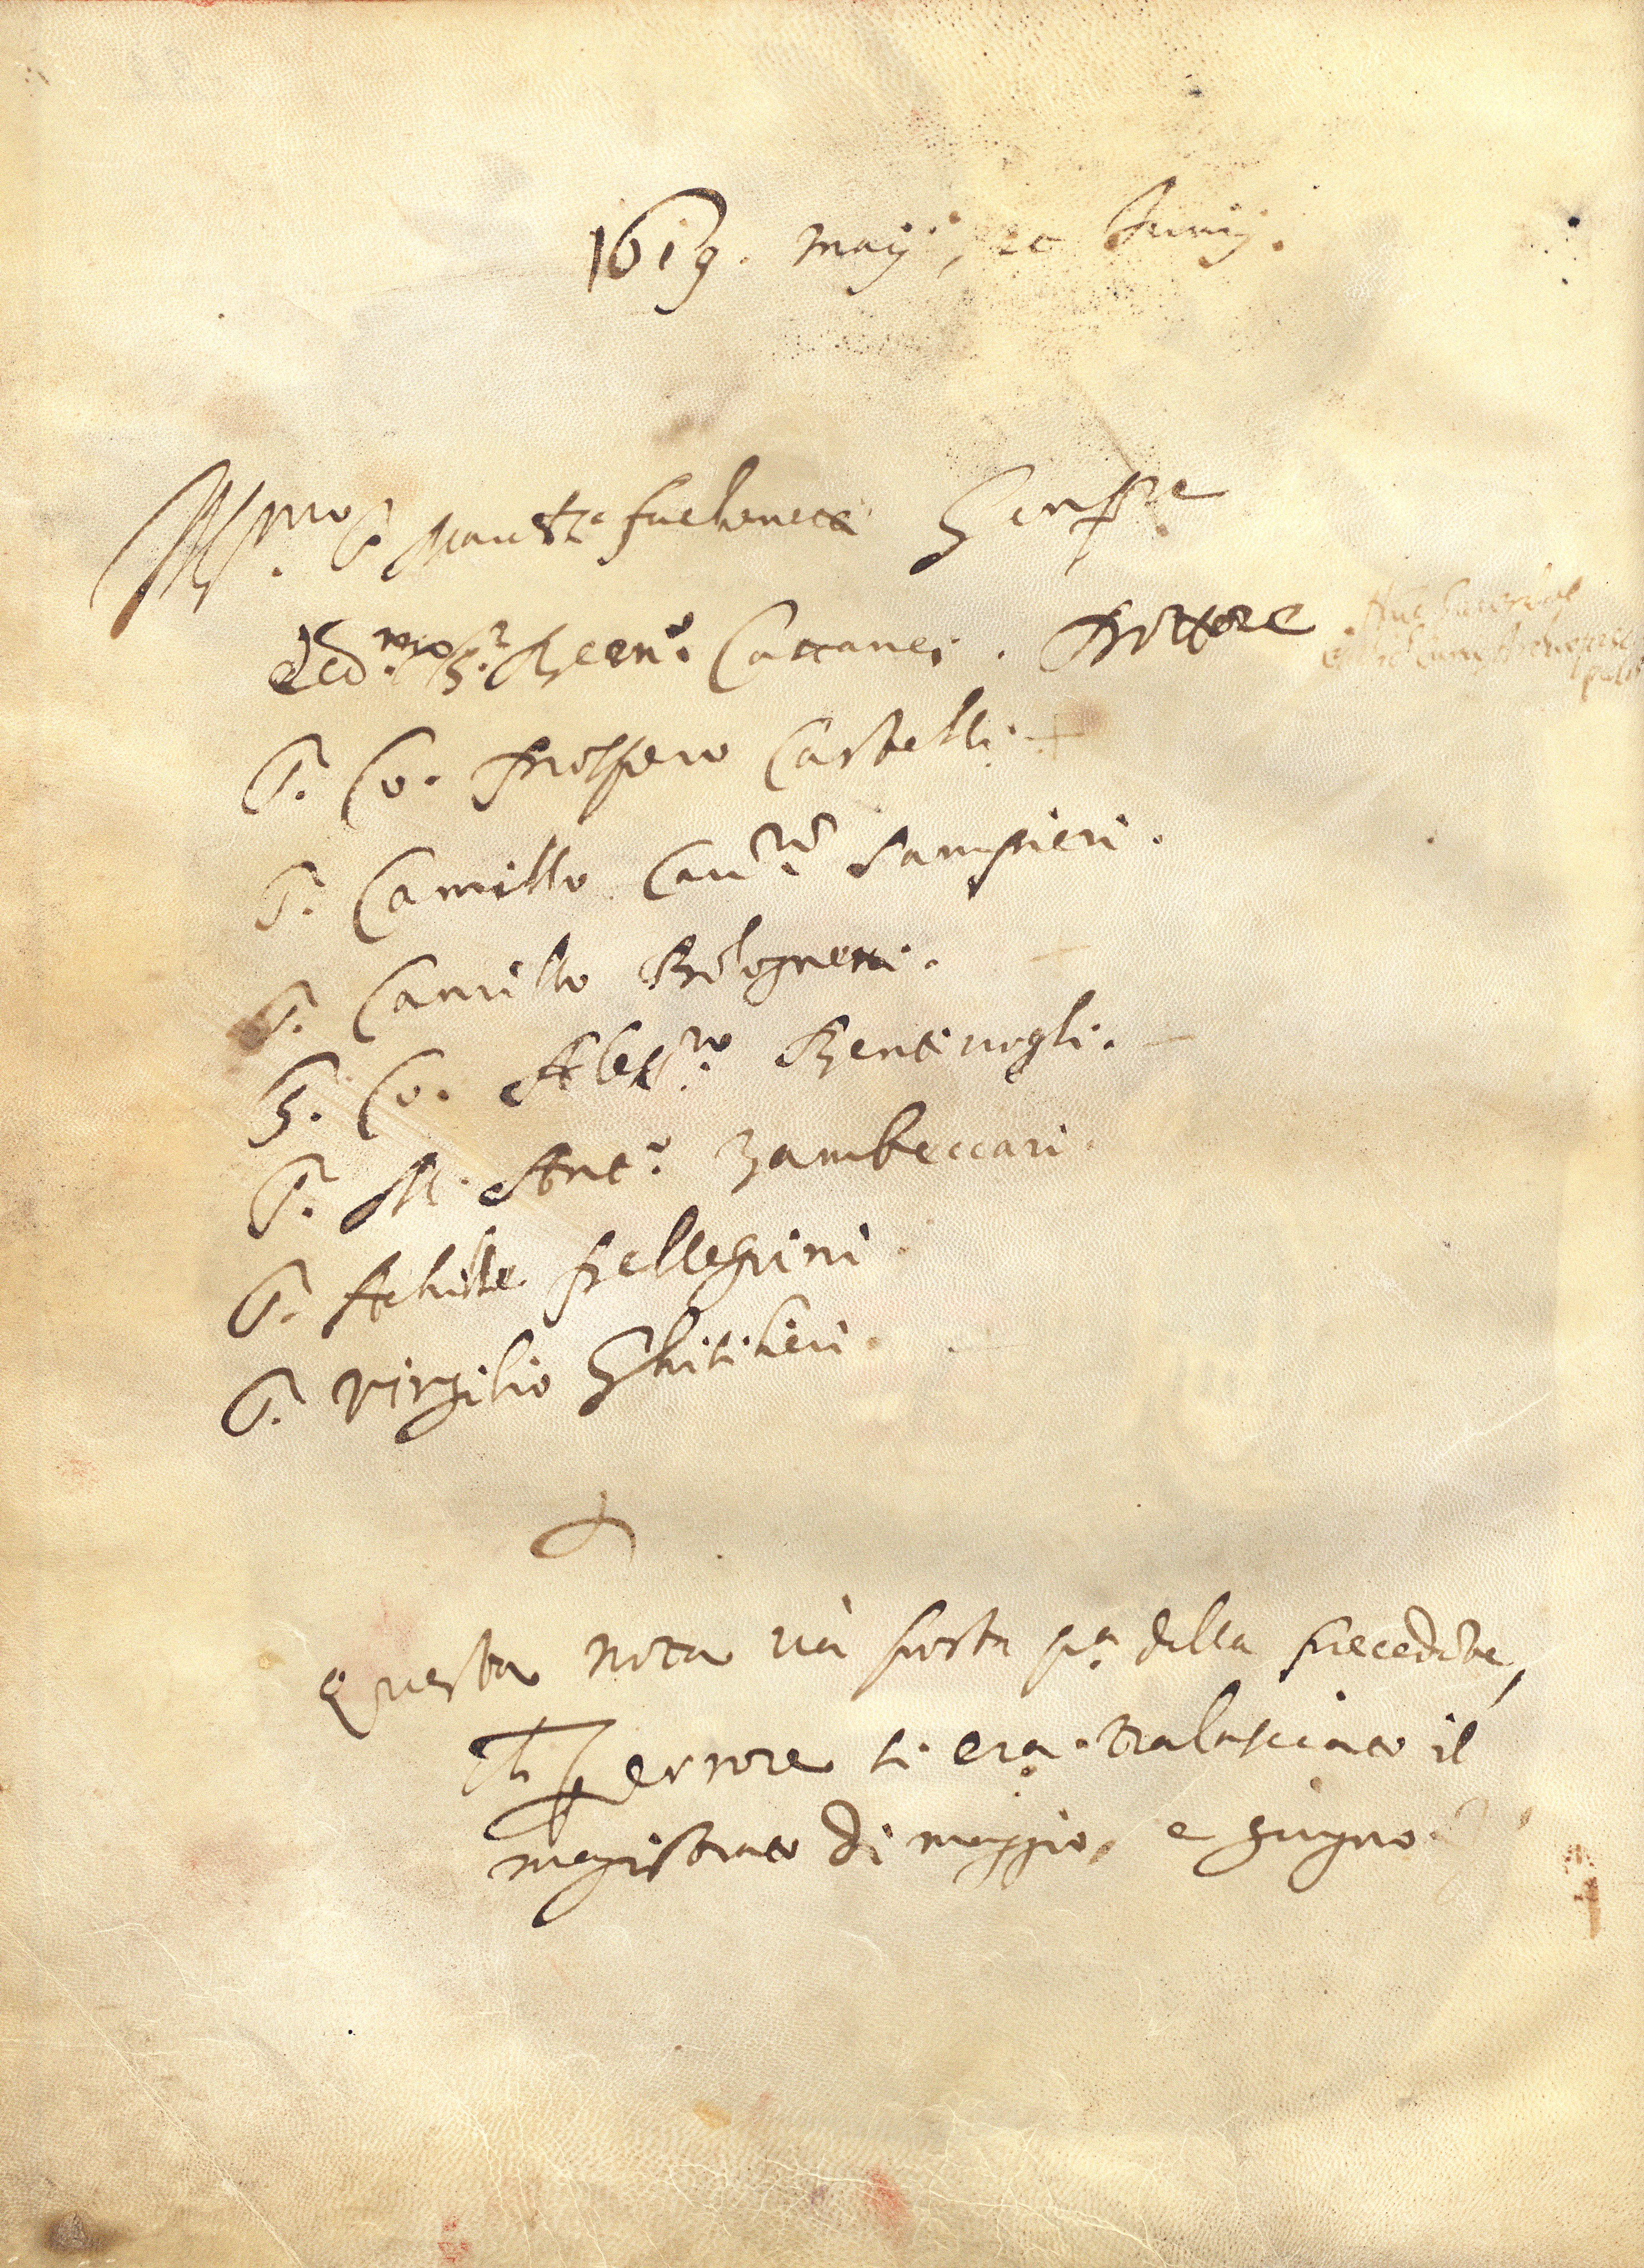 1619. maij, et Junij.
Ill.mo S. Gonf.re
Ecc.mo S.r Bern.o Cattanei. Dottore
S. Co. Prospero Castelli.
S. Camillo Cau.ro Sampieri.
S. Camillo Bolognetti.
S. Co. Aless.ro Bentiuogli.
S. M. Ant.o Zambeccari.
S. Achille Pellegrini
S. Virgilio Ghisilieri.
Questa nota uà posta p.a della precedẽte,
ch per errore si era tralasciato il
magistrato di maggio, e giugno